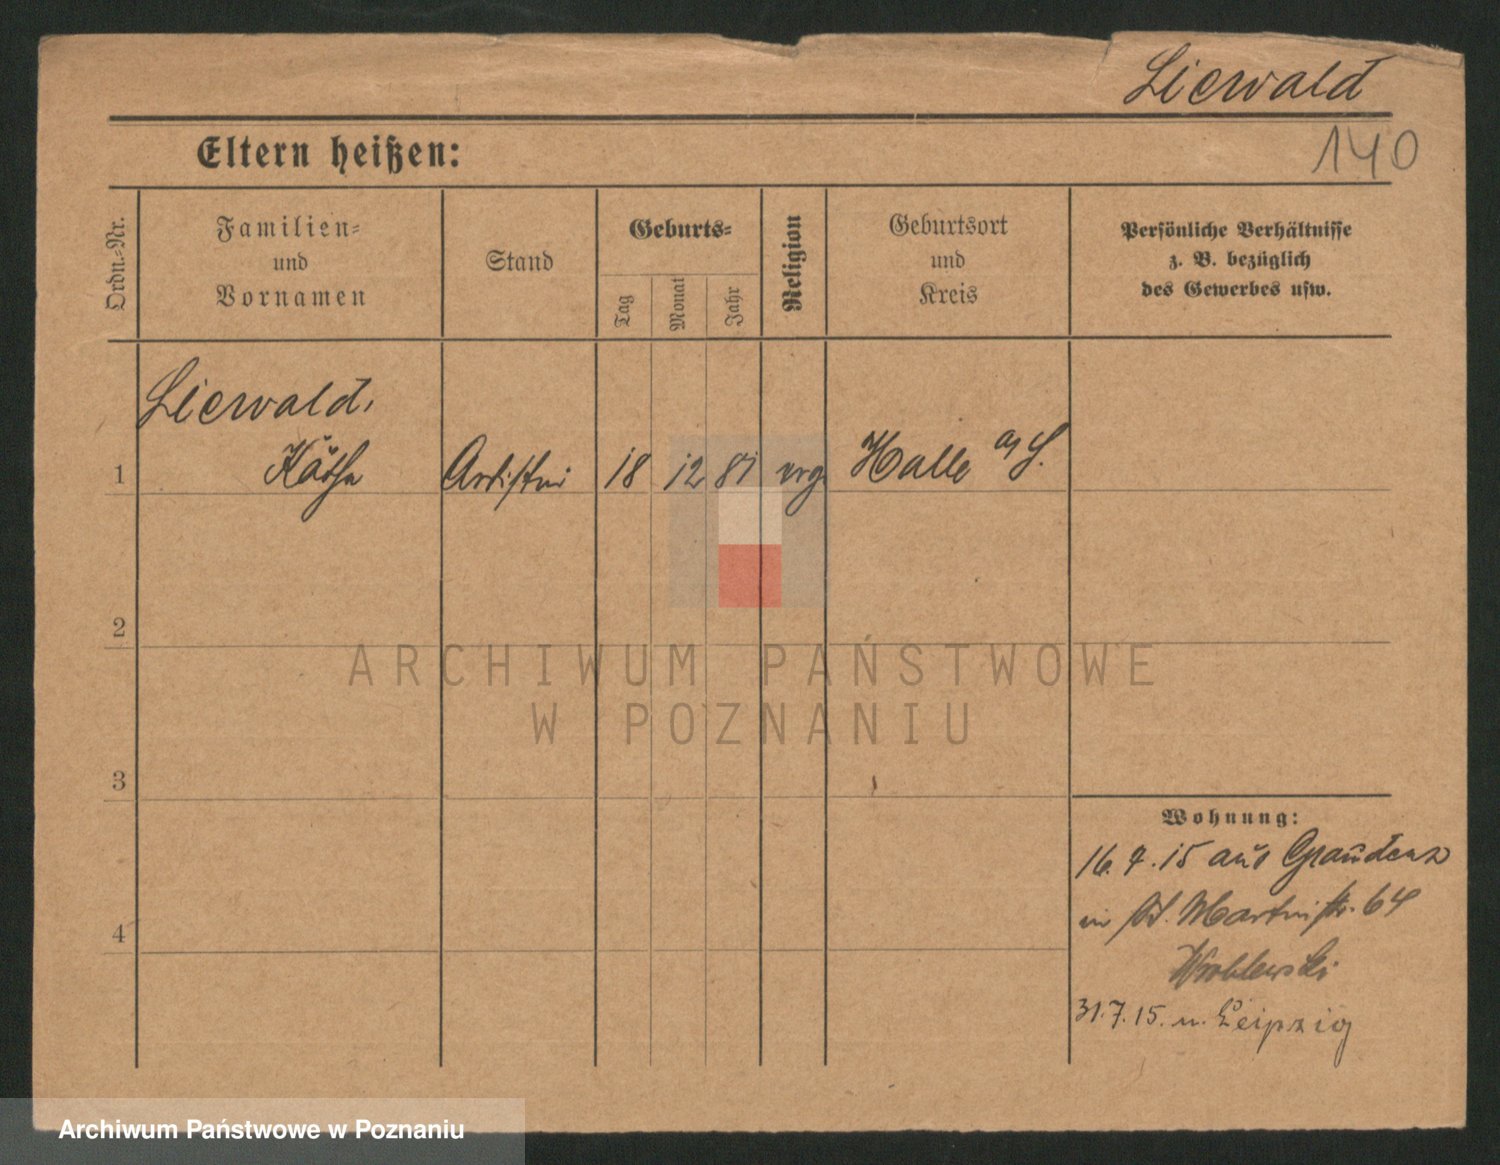 Lierwald
140
Eltern heißen:
Ordn.-Nr.
Familien-
und
Vornamen
Stand
Geburts-
Tag
Monat
Jahr
Religion
Geburtsort
und
Kreis
Persönliche Verhältnisse
z. B. bezüglich
des Gewerbes usw.
Lierwald,
1 Käthe Artistin 18 12 81 evg Halle a/S.
2
3
4
Wohnung:
16.7.15 aus Graudenz
in St. Martinstr. 64
Wroblewski
31.7.15. n. Leipzig
ARCHIWUM PAŃSTWOWE
W POZNANIU
Archiwum Państwowe w Poznaniu